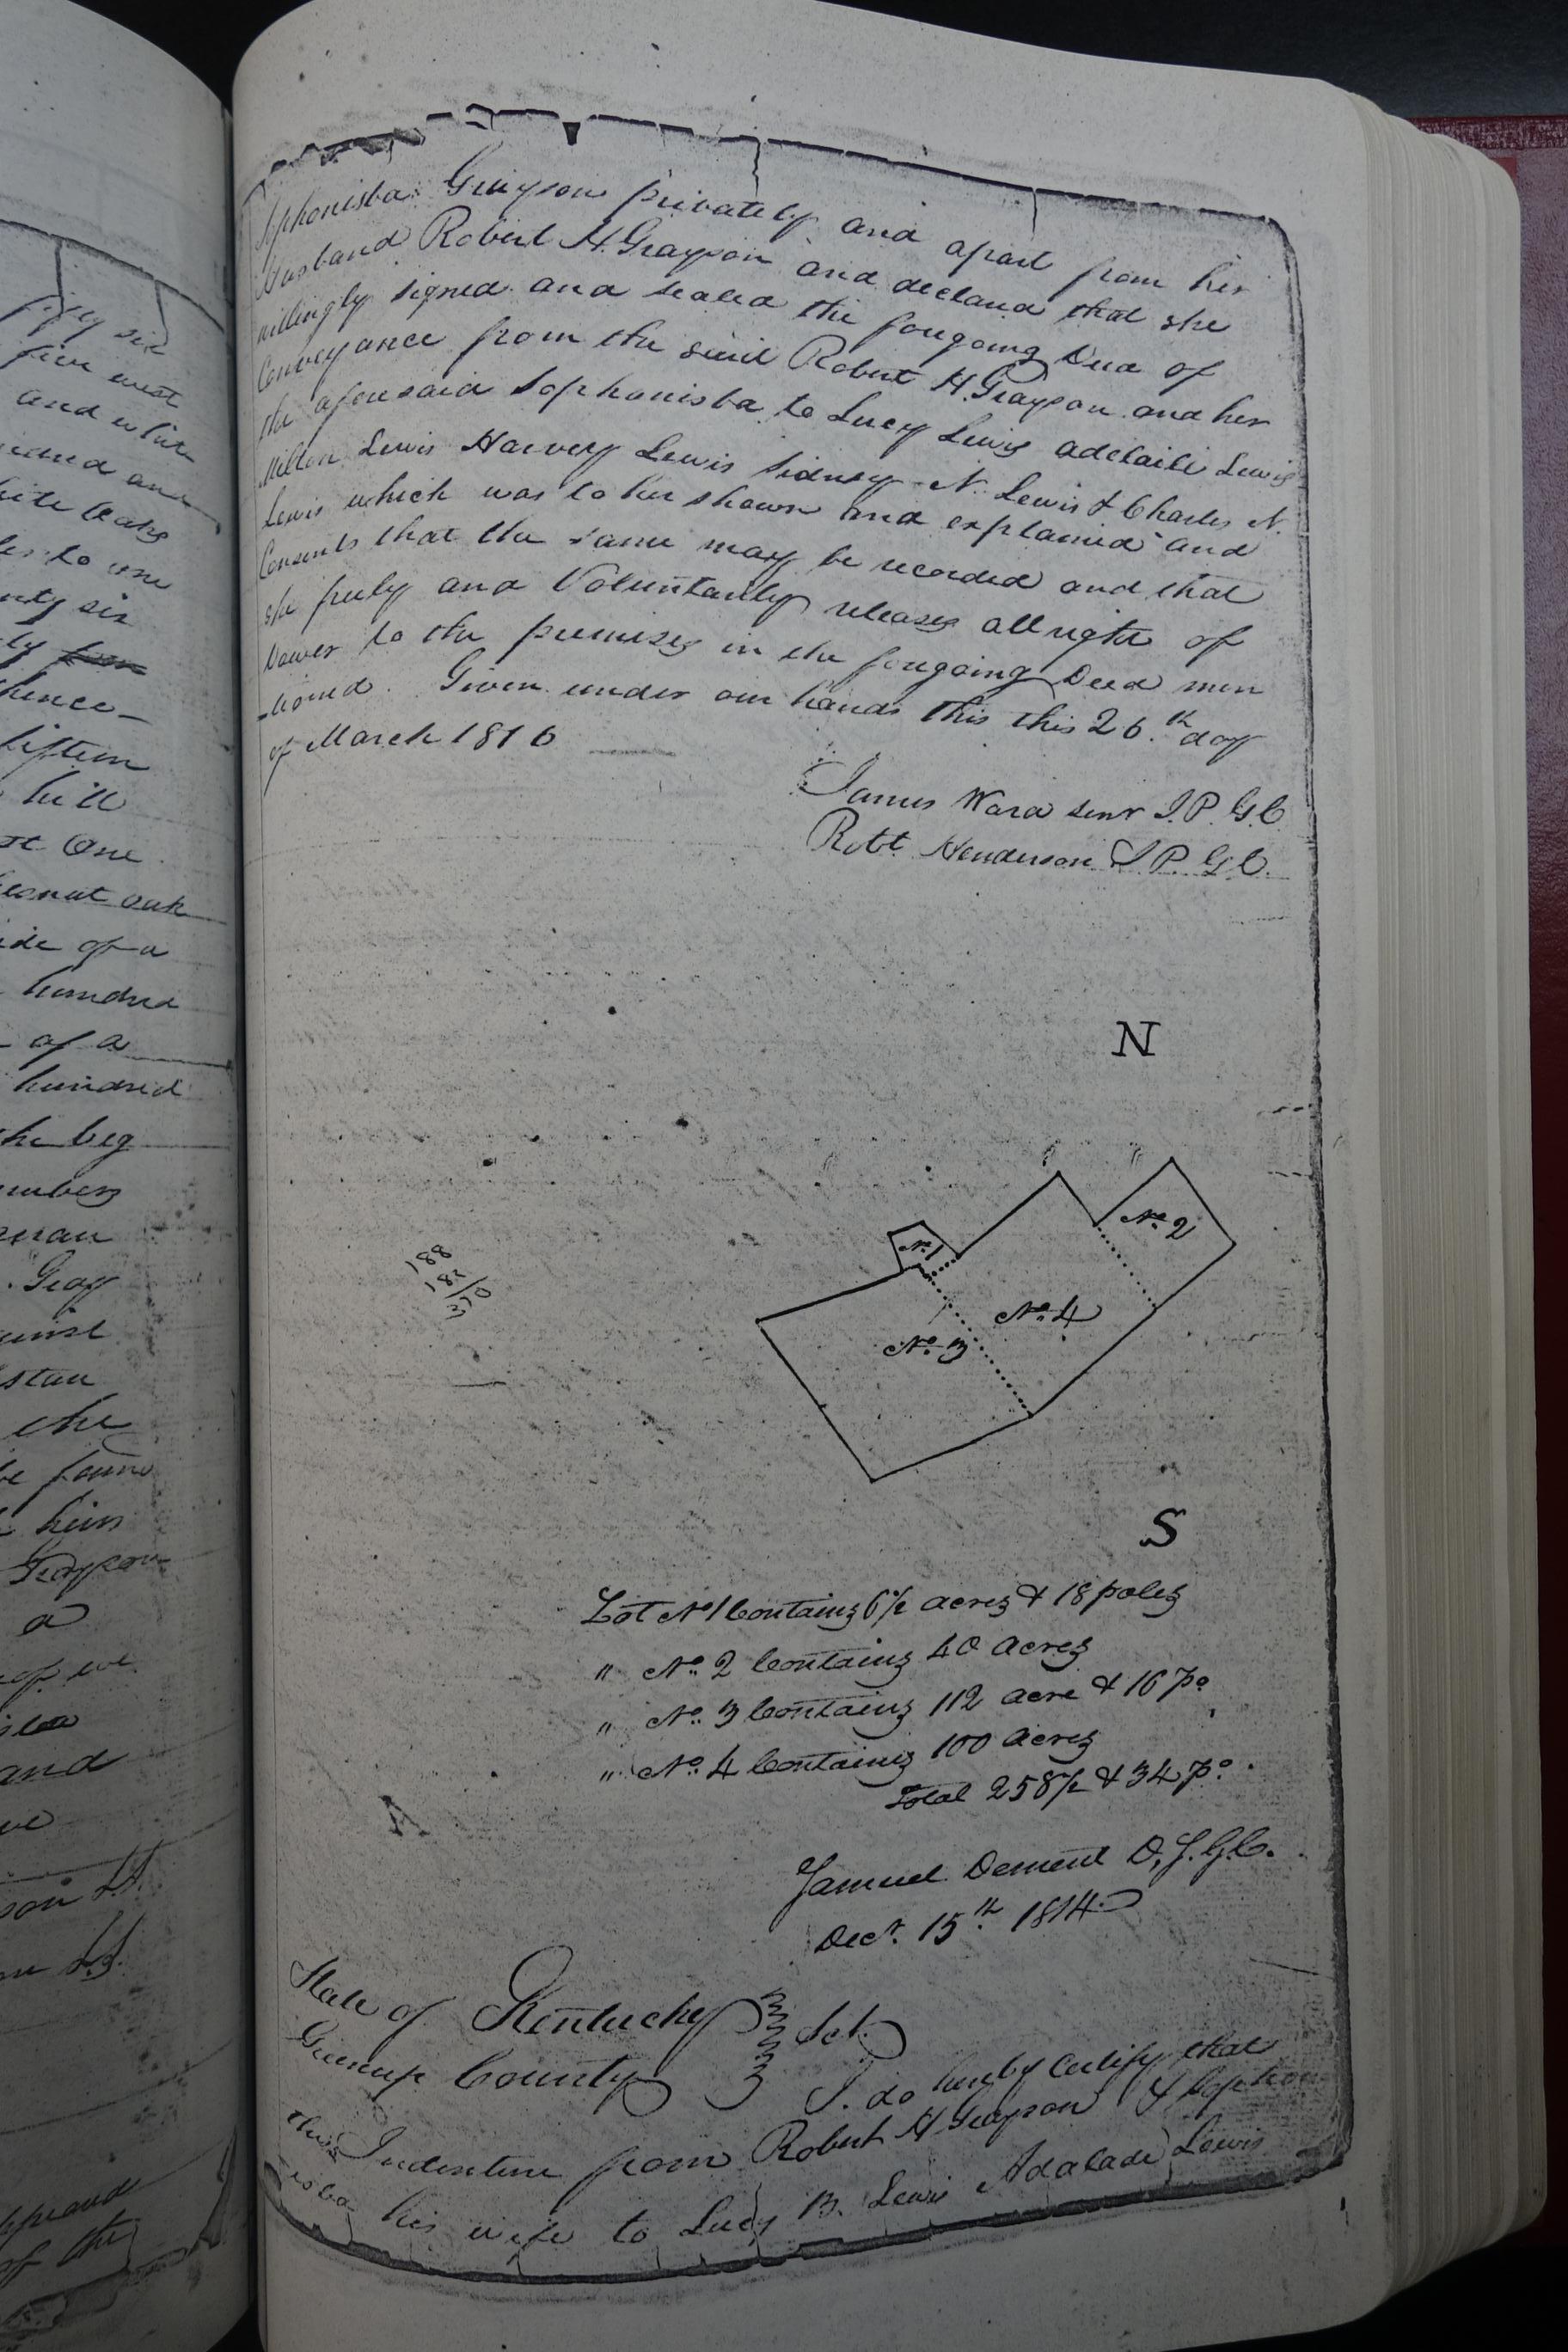 fifty six
five west
and white
and
white Oaks
to one
twenty six
thence
fifteen
hill
One
Chesnut oak
side of a
hundred
of a
hundred
the beg
numbers
Gray
against
the
be found
him
Grayson
a
of we
and
of the
Sophonisba Grayson privately and apart from her
Husband Robert H. Grayson and declared that she
willingly signed and sealed the foregoing Deed of
Conveyance from the said Robert H. Grayson and her
the aforesaid Sophonisba to Lucy Lewis adelaide Lewis
Milton Lewis Harvey Lewis Sidney N. Lewis & Charles N.
Lewis which was to her shown and explained and
Consents that the same may be recorded and that
she freely and Voluntarily releases all right of
Dower to the premises in the foregoing Deed men
-tioned. Given under our hands this this 26.th day
of March 1816
James Ward Senr J.P. G.C.
Robt. Henderson J.P. G.C.
N
No. 1
No. 2
No. 4
No. 3
188
182
370
S
Lot No 1 Contains 6 1/2 acres & 18 poles
" No. 2 Contains 40 acres
" No. 3 Contains 112 acre & 16 po
" No. 4 Contains 100 acres
Total 258 1/2 & 34 po.
Samuel Dement D.S.G.C.
Decr. 15th 1814
State of Kentucky
Greenup County } Sct.
I do hereby certify that
this Indenture from Robert H Grayson & Sophon
-isba his wife to Lucy B. Lewis Adalade Lewis